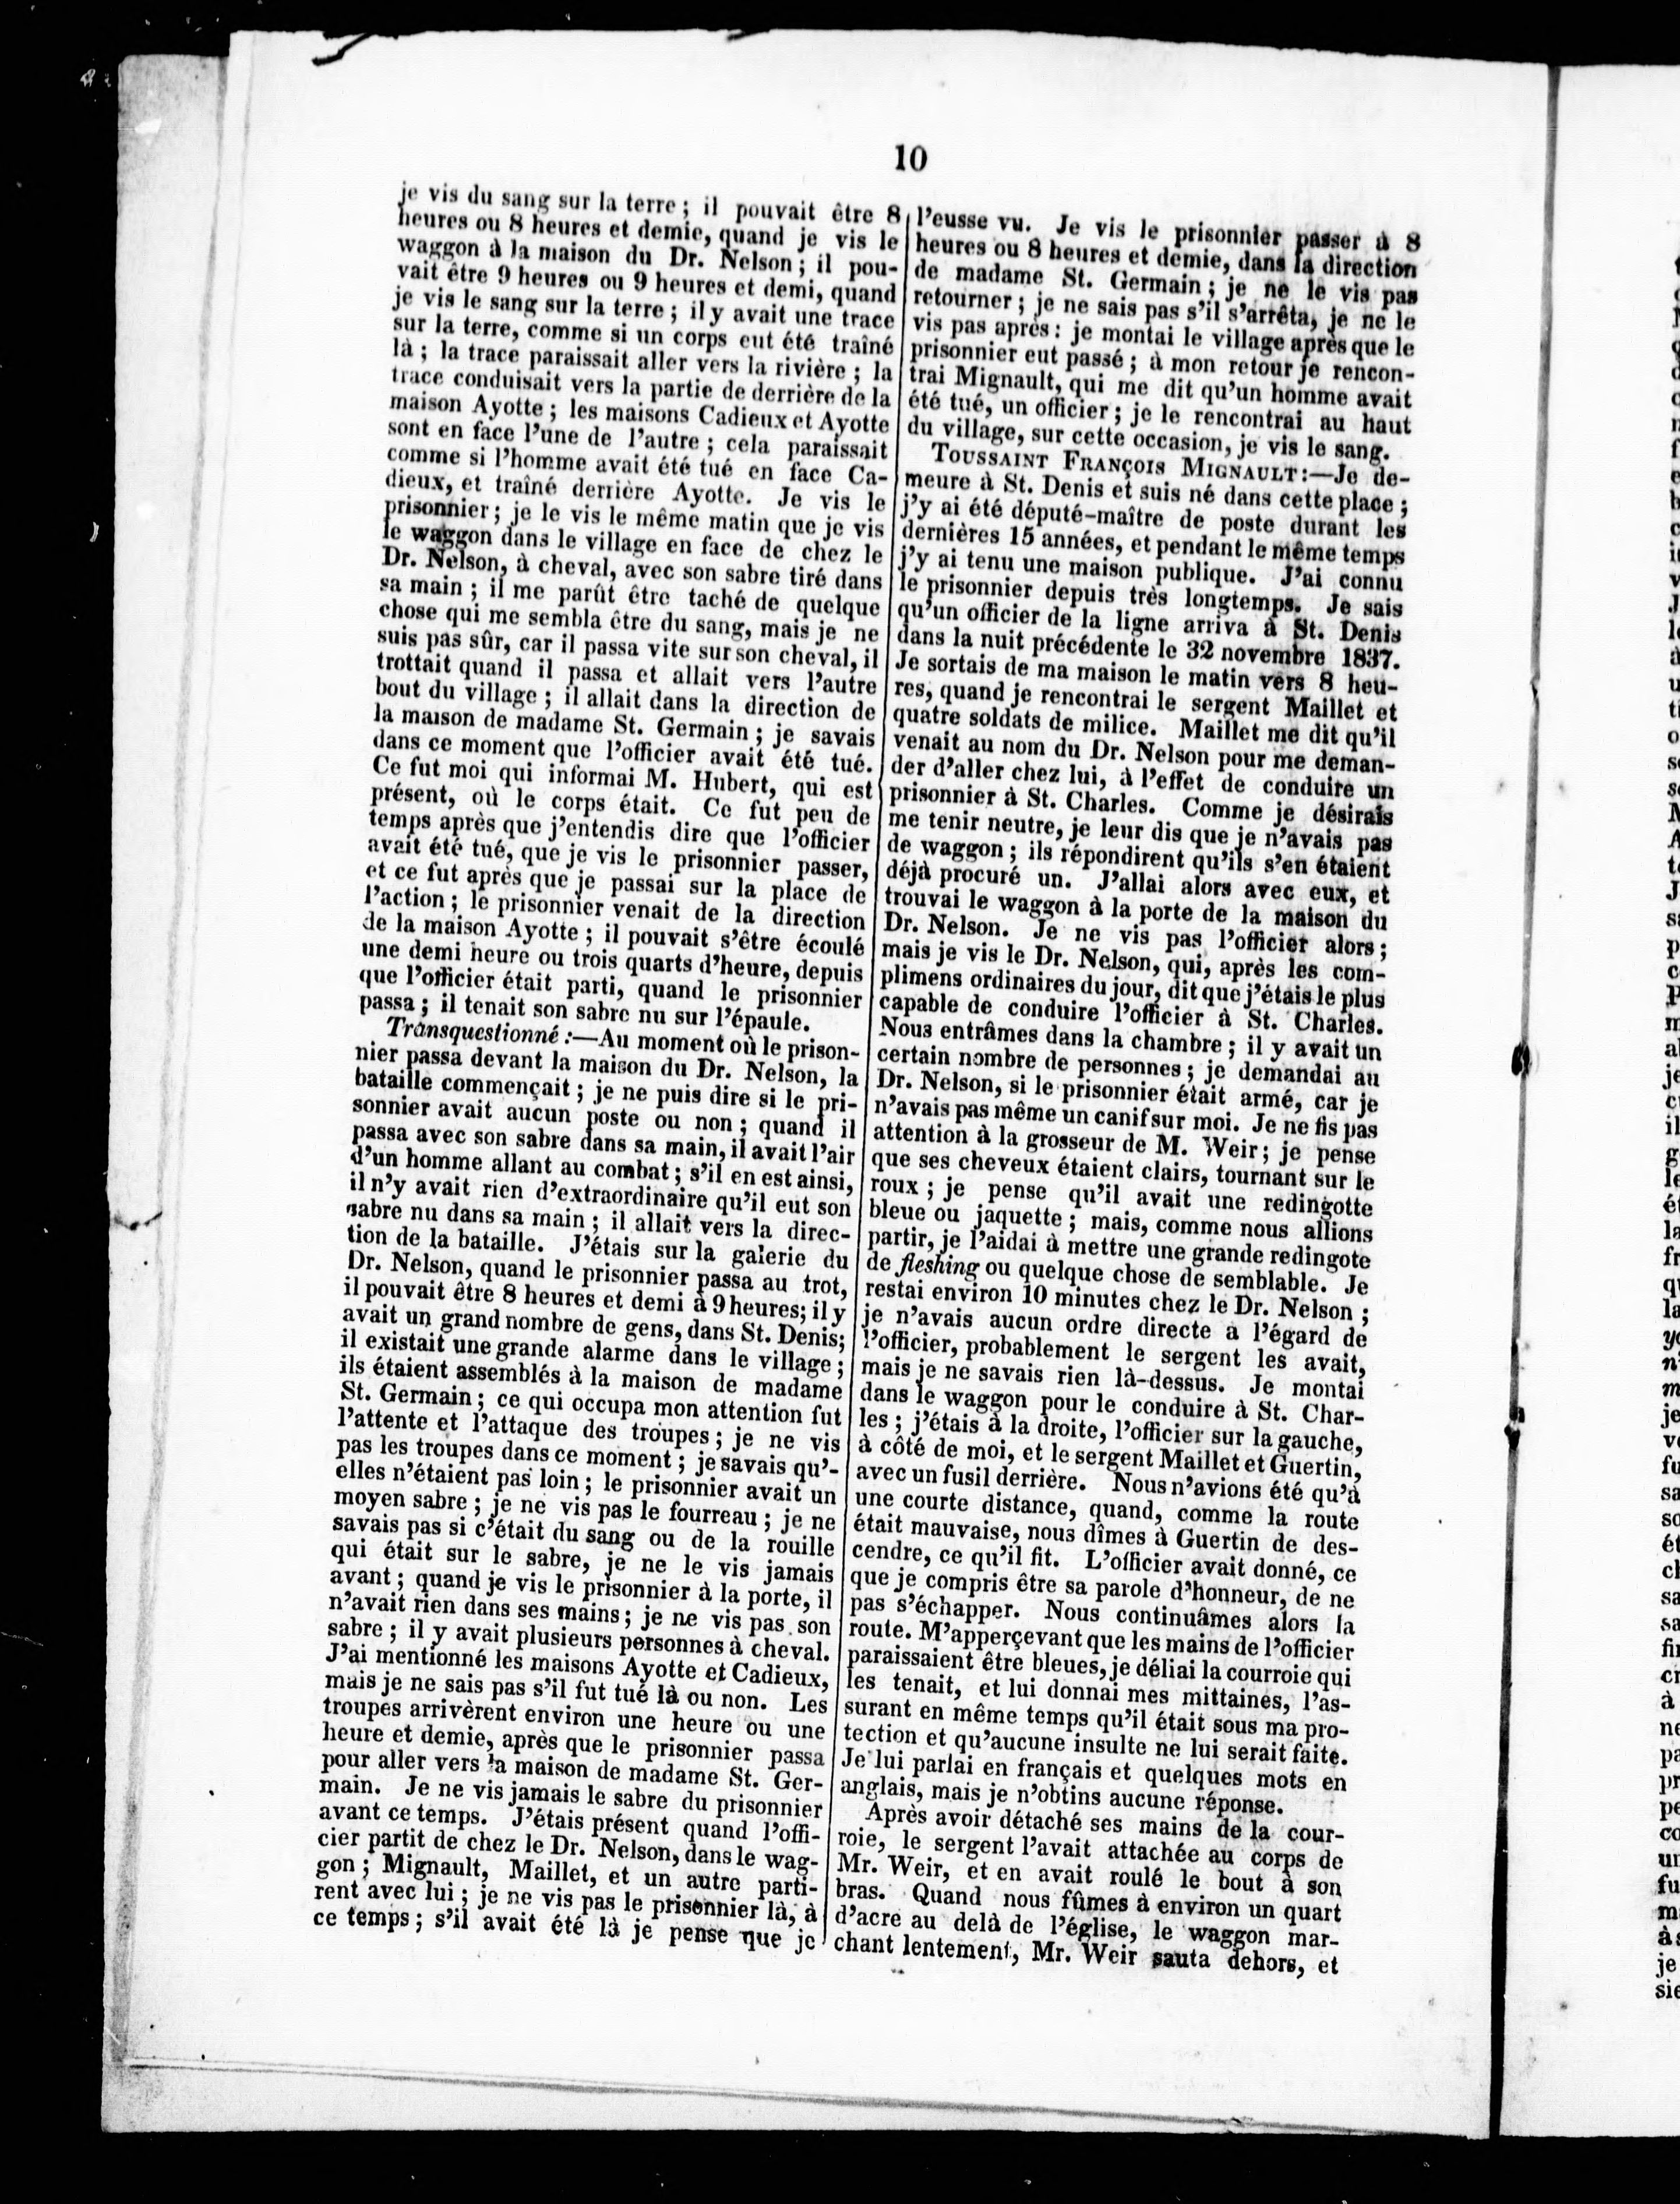 10
je vis du sang sur la terre ; il pouvait être 8
heures ou 8 heures et demie, quand je vis le
waggon à la maison du Dr. Nelson ; il pou-
vait être 9 heures ou 9 heures et demi, quand
je vis le sang sur la terre ; il y avait une trace
sur la terre, comme si un corps eut été traîné
là ; la trace paraissait aller vers la rivière ; la
trace conduisait vers la partie de derrière de la
maison Ayotte ; les maisons Cadieux et Ayotte
sont en face l'une de l'autre ; cela paraissait
comme si l'homme avait été tué en face Ca-
dieux, et traîné derrière Ayotte. Je vis le
prisonnier ; je le vis le même matin que je vis
le waggon dans le village en face de chez le
Dr. Nelson, à cheval, avec son sabre tiré dans
sa main ; il me parût être taché de quelque
chose qui me sembla être du sang, mais je ne
suis pas sûr, car il passa vite sur son cheval, il
trottait quand il passa et allait vers l'autre
bout du village ; il allait dans la direction de
la maison de madame St. Germain ; je savais
dans ce moment que l'officier avait été tué.
Ce fut moi qui informai M. Hubert, qui est
présent, où le corps était. Ce fut peu de
temps après que j'entendis dire que l'officier
avait été tué, que je vis le prisonnier passer,
et ce fut après que je passai sur la place de
l'action ; le prisonnier venait de la direction
de la maison Ayotte ; il pouvait s'être écoulé
une demi heure ou trois quarts d'heure, depuis
que l'officier était parti, quand le prisonnier
passa ; il tenait son sabre nu sur l'épaule.
Transquestionné :—Au moment où le prison-
nier passa devant la maison du Dr. Nelson, la
bataille commençait ; je ne puis dire si le pri-
sonnier avait aucun poste ou non ; quand il
passa avec son sabre dans sa main, il avait l'air
d'un homme allant au combat ; s'il en est ainsi,
il n'y avait rien d'extraordinaire qu'il eut son
sabre nu dans sa main ; il allait vers la direc-
tion de la bataille. J'étais sur la galerie du
Dr. Nelson, quand le prisonnier passa au trot,
il pouvait être 8 heures et demi à 9 heures; il y
avait un grand nombre de gens, dans St. Denis;
il existait une grande alarme dans le village ;
ils étaient assemblés à la maison de madame
St. Germain ; ce qui occupa mon attention fut
l'attente et l'attaque des troupes ; je ne vis
pas les troupes dans ce moment ; je savais qu'-
elles n'étaient pas loin ; le prisonnier avait un
moyen sabre ; je ne vis pas le fourreau ; je ne
savais pas si c'était du sang ou de la rouille
qui était sur le sabre, je ne le vis jamais
avant ; quand je vis le prisonnier à la porte, il
n'avait rien dans ses mains ; je ne vis pas son
sabre ; il y avait plusieurs personnes à cheval.
J'ai mentionné les maisons Ayotte et Cadieux,
mais je ne sais pas s'il fut tué là ou non. Les
troupes arrivèrent environ une heure ou une
heure et demie, après que le prisonnier passa
pour aller vers la maison de madame St. Ger-
main. Je ne vis jamais le sabre du prisonnier
avant ce temps. J'étais présent quand l'offi-
cier partit de chez le Dr. Nelson, dans le wag-
gon ; Mignault, Maillet, et un autre parti-
rent avec lui ; je ne vis pas le prisonnier là, à
ce temps ; s'il avait été là je pense que je
l'eusse vu. Je vis le prisonnier passer à 8
heures ou 8 heures et demie, dans la direction
de madame St. Germain ; je ne le vis pas
retourner ; je ne sais pas s'il s'arrêta, je ne le
vis pas après : je montai le village après que le
prisonnier eut passé ; à mon retour je rencon-
trai Mignault, qui me dit qu'un homme avait
été tué, un officier ; je le rencontrai au haut
du village, sur cette occasion, je vis le sang.
TOUSSAINT FRANÇOIS MIGNAULT:—Je de-
meure à St. Denis et suis né dans cette place ;
j'y ai été député-maître de poste durant les
dernières 15 années, et pendant le même temps
j'y ai tenu une maison publique. J'ai connu
le prisonnier depuis très longtemps. Je sais
qu'un officier de la ligne arriva à St. Denis
dans la nuit précédente le 32 novembre 1837.
Je sortais de ma maison le matin vers 8 heu-
res, quand je rencontrai le sergent Maillet et
quatre soldats de milice. Maillet me dit qu'il
venait au nom du Dr. Nelson pour me deman-
der d'aller chez lui, à l'effet de conduire un
prisonnier à St. Charles. Comme je désirais
me tenir neutre, je leur dis que je n'avais pas
de waggon ; ils répondirent qu'ils s'en étaient
déjà procuré un. J'allai alors avec eux, et
trouvai le waggon à la porte de la maison du
Dr. Nelson. Je ne vis pas l'officier alors ;
mais je vis le Dr. Nelson, qui, après les com-
plimens ordinaires du jour, dit que j'étais le plus
capable de conduire l'officier à St. Charles.
Nous entrâmes dans la chambre ; il y avait un
certain nombre de personnes ; je demandai au
Dr. Nelson, si le prisonnier était armé, car je
n'avais pas même un canif sur moi. Je ne fis pas
attention à la grosseur de M. Weir ; je pense
que ses cheveux étaient clairs, tournant sur le
roux ; je pense qu'il avait une redingotte
bleue ou jaquette ; mais, comme nous allions
partir, je l'aidai à mettre une grande redingote
de fleshing ou quelque chose de semblable. Je
restai environ 10 minutes chez le Dr. Nelson ;
je n'avais aucun ordre directe a l'égard de
l'officier, probablement le sergent les avait,
mais je ne savais rien là-dessus. Je montai
dans le waggon pour le conduire à St. Char-
les ; j'étais à la droite, l'officier sur la gauche,
à côté de moi, et le sergent Maillet et Guertin,
avec un fusil derrière. Nous n'avions été qu'à
une courte distance, quand, comme la route
était mauvaise, nous dîmes à Guertin de des-
cendre, ce qu'il fit. L'officier avait donné, ce
que je compris être sa parole d'honneur, de ne
pas s'échapper. Nous continuâmes alors la
route. M'apperçevant que les mains de l'officier
paraissaient être bleues, je déliai la courroie qui
les tenait, et lui donnai mes mittaines, l'as-
surant en même temps qu'il était sous ma pro-
tection et qu'aucune insulte ne lui serait faite.
Je lui parlai en français et quelques mots en
anglais, mais je n'obtins aucune réponse.
Après avoir détaché ses mains de la cour-
roie, le sergent l'avait attachée au corps de
Mr. Weir, et en avait roulé le bout à son
bras. Quand nous fûmes à environ un quart
d'acre au delà de l'église, le waggon mar-
chant lentement, Mr. Weir sauta dehors, et